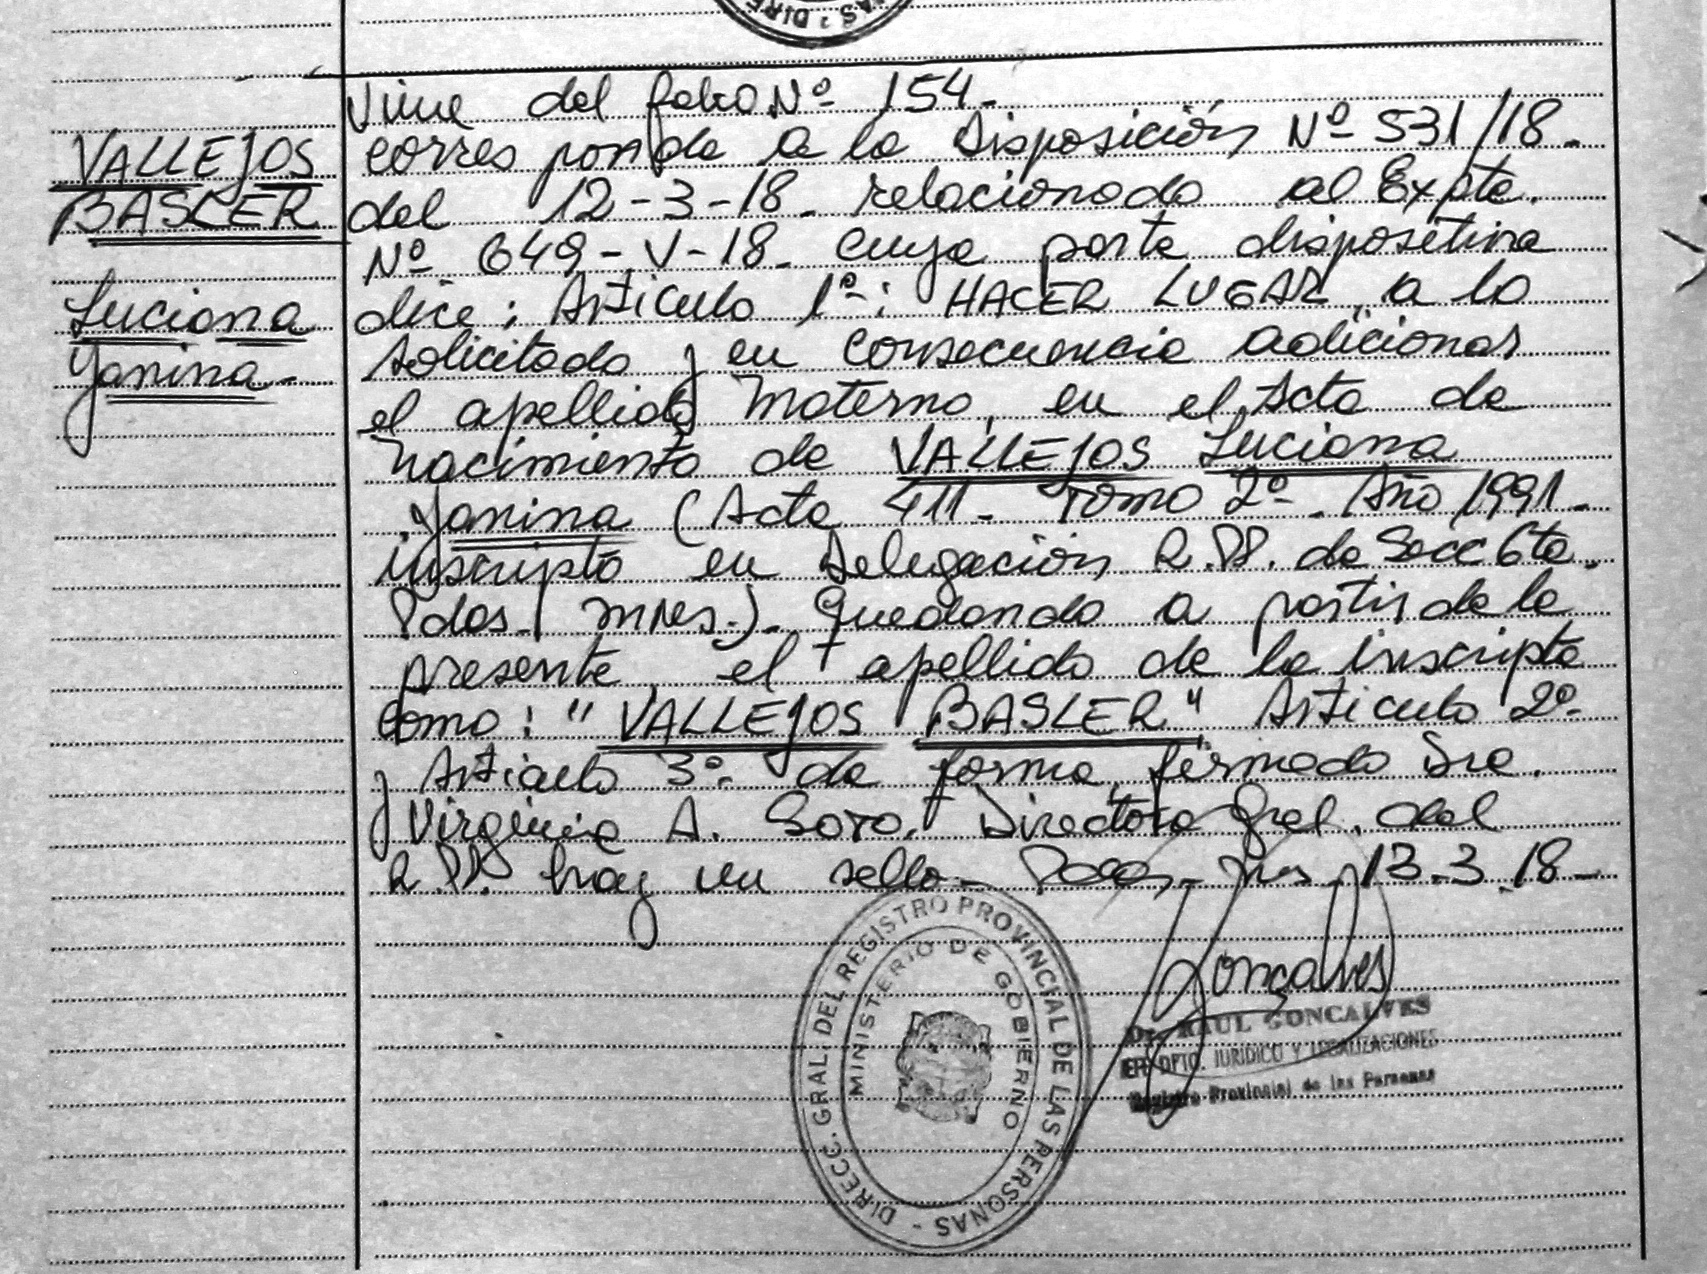 Viene del folio Nº 154-
VALLEJOS
BASLER
Luciana
Yanina-
corresponde a la Disposición Nº 531/18-
del 12-3-18- relacionado al Expte.
Nº 649-V-18- cuya parte dispositiva
dice: Artículo 1º: HACER LUGAR, a lo
solicitado y en consecuencia adicionar
el apellido Materno, en el Acta de
Nacimiento de VALLEJOS Luciana
Yanina (Acta 411- Tomo 2º- Año 1991-
inscripta en Delegación R.PP. de Secc 6ta-
Pdas- Mnes.)- Quedando a partir de la
presente el apellido de la inscripta
como: "VALLEJOS BASLER" Artículo 2º-
y Artículo 3º- de forma, firmado Dra.
Virginia A. Soto. Directora Gral. del
R.PP. hay un sello- Pdas- Mnes 13-3-18-
Goncalves
Dr. RAUL GONCALVES
DPTO. JURIDICO Y LEGALIZACIONES
Registro Provincial de las Personas
DIRECC. GRAL. DEL REGISTRO PROVINCIAL DE LAS PERSONAS -
MINISTERIO DE GOBIERNO